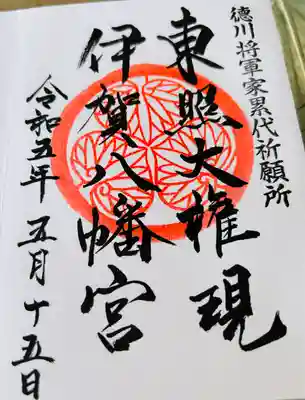 徳川将軍家累代祈願所
東照大権現
伊賀八幡宮
令和五年 五月十五日